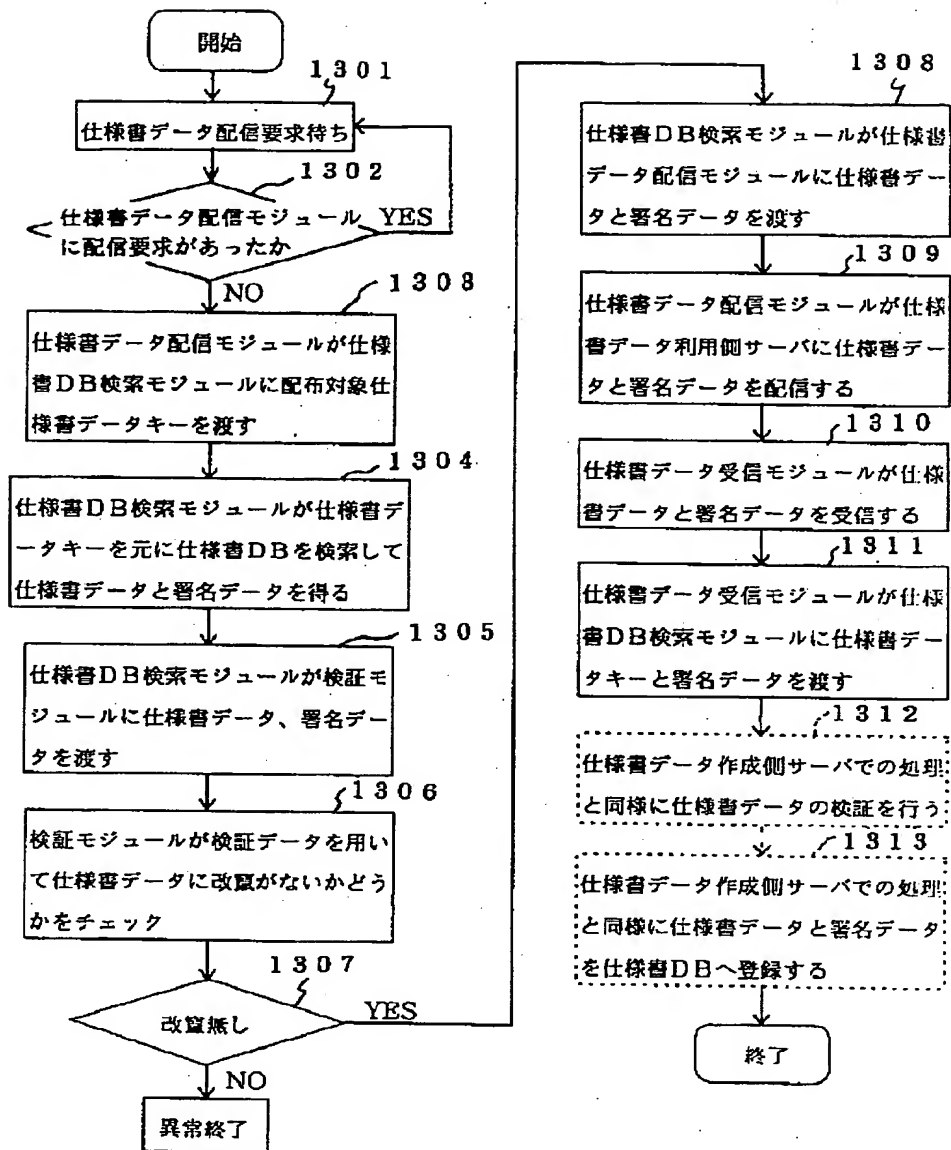 開始
1301
仕様書データ配信要求待ち
1302
仕様書データ配信モジュール
に配信要求があったか
YES
NO
1303
仕様書データ配信モジュールが仕様
書DB検索モジュールに配布対象仕
様書データキーを渡す
1304
仕様書DB検索モジュールが仕様書デ
ータキーを元に仕様書DBを検索して
仕様書データと署名データを得る
1305
仕様書DB検索モジュールが検証モ
ジュールに仕様書データ、署名デー
タを渡す
1306
検証モジュールが検証データを用い
て仕様書データに改竄がないかどう
かをチェック
1307
改竄無し
YES
NO
異常終了
1308
仕様書DB検索モジュールが仕様書
データ配信モジュールに仕様書デー
タと署名データを渡す
1309
仕様書データ配信モジュールが仕様
書データ利用側サーバに仕様書デー
タと署名データを配信する
1310
仕様書データ受信モジュールが仕様
書データと署名データを受信する
1311
仕様書データ受信モジュールが仕様
書DB検索モジュールに仕様書デー
タキーと署名データを渡す
1312
仕様書データ作成側サーバでの処理
と同様に仕様書データの検証を行う
1313
仕様書データ作成側サーバでの処理
と同様に仕様書データと署名データ
を仕様書DBへ登録する
終了